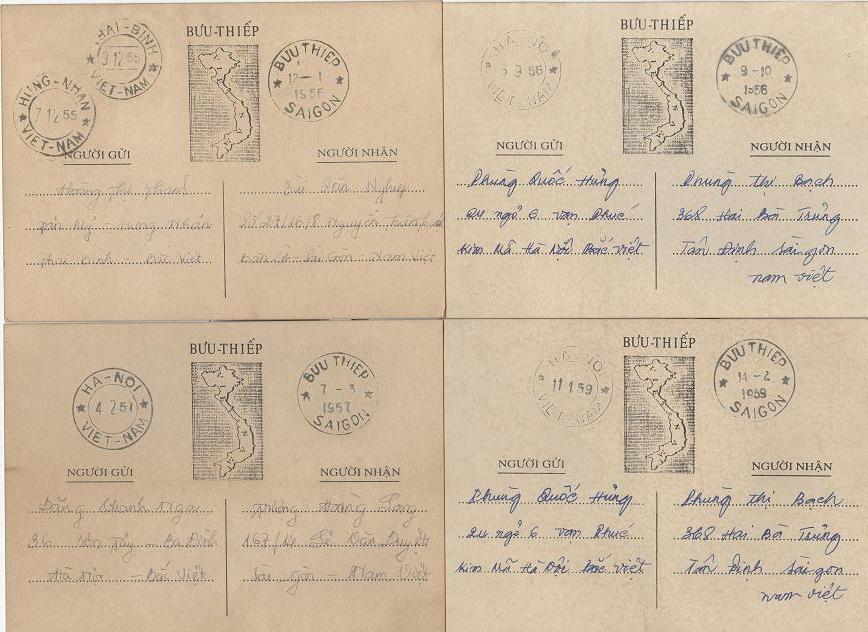 BƯU-THIẾP
THAI-BINH
9 12 55
VIET-NAM
HUNG-NHAN
7 12 55
VIET-NAM
BUU THIEP
12-1
1956
SAIGON
NGƯỜI GỬI
NGƯỜI NHẬN
Hưng Nhân
Bắc Việt
Bùi Văn
Nguyễn
Sài Gòn - Nam Việt
BƯU-THIẾP
HA-NOI
9 56
VIET-NAM
BUU THIEP
9-10
1956
SAIGON
NGƯỜI GỬI
NGƯỜI NHẬN
Phùng Quốc Hùng
24 ngõ 6 vạn Phúc
Kim Mã Hà Nội Bắc việt
Phùng thị Bạch
368 Hai Bà Trưng
Tân Định Sàigon
nam việt
BƯU-THIẾP
HA-NOI
4 2 57
VIET-NAM
BUU THIEP
7-3
1957
SAIGON
NGƯỜI GỬI
NGƯỜI NHẬN
Đặng Khanh Ngau
36 Sơn Tây - Ba Đình
Hà Nội - Bắc Việt
Hoàng Long
Lê Văn Duyệt
Sài gòn - Nam Việt
BƯU-THIẾP
HA-NOI
11 1 59
VIET-NAM
BUU THIEP
14-2
1959
SAIGON
NGƯỜI GỬI
NGƯỜI NHẬN
Phùng Quốc Hùng
24 ngõ 6 vạn Phúc
Kim Mã Hà Nội Bắc việt
Phùng thị Bạch
368 Hai Bà Trưng
Tân Định Sàigon
nam việt